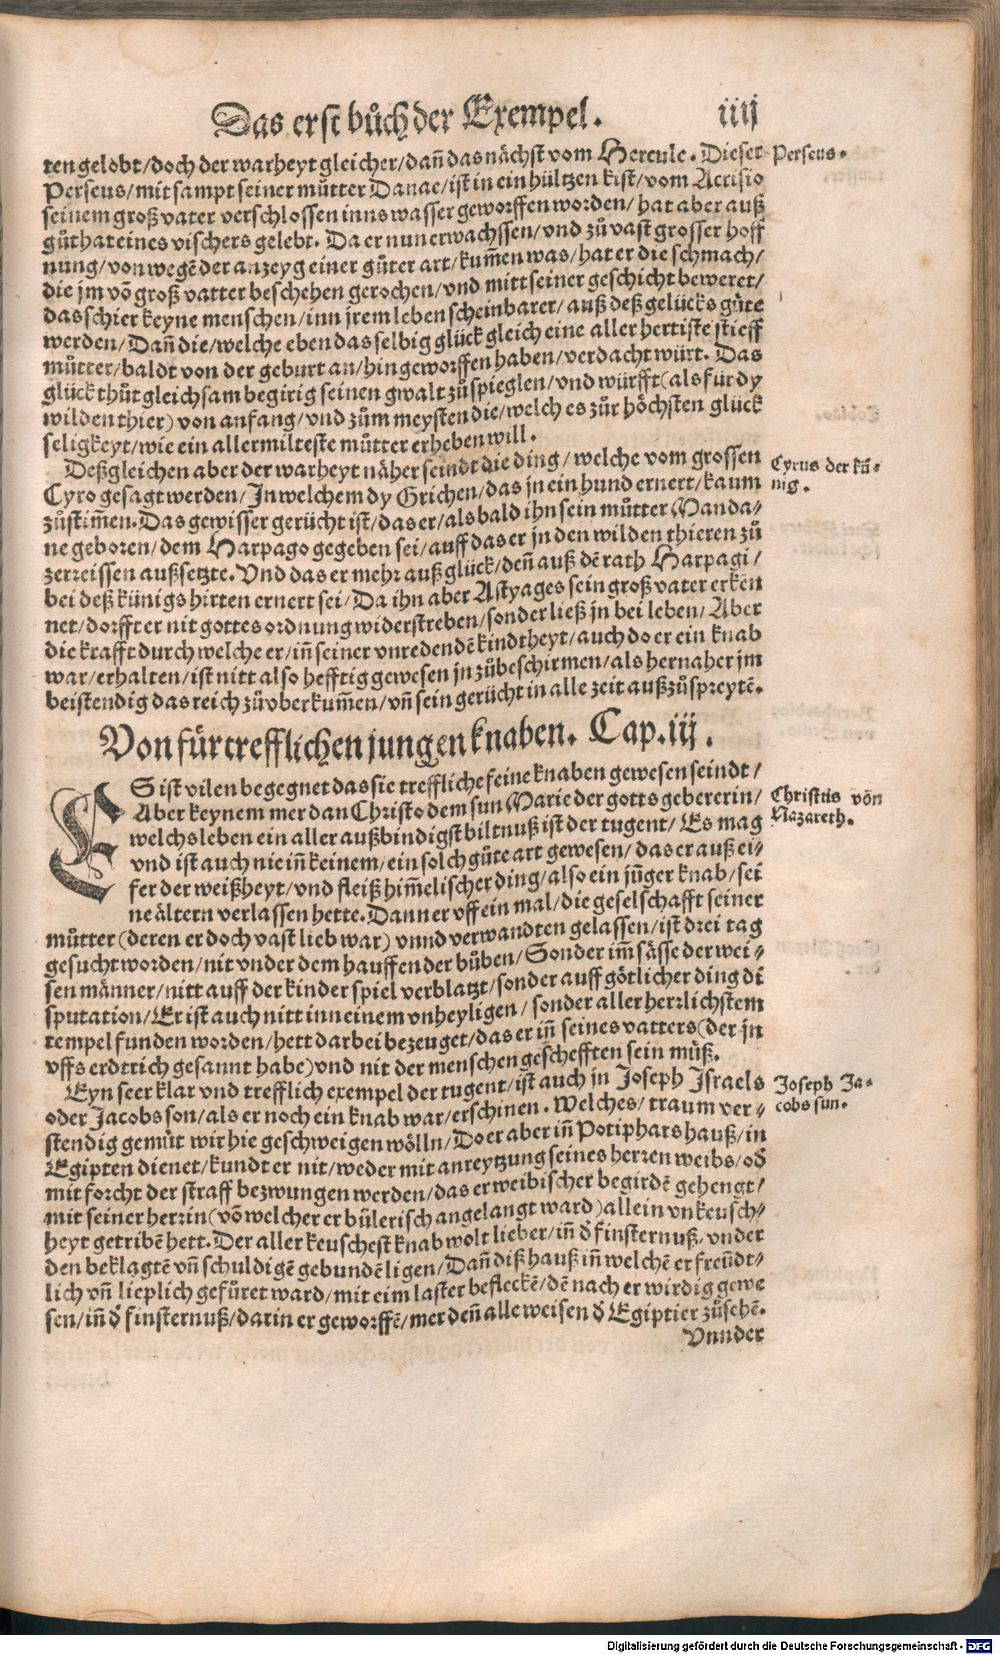 Das erst bůch der Exempel. iiij
ten gelobt/doch der warheyt gleicher/dañ das nächst vom Hercule. Dieser
Perseus.
Perseus/mit sampt seiner můtter Danae/ist in ein hültzen kist/vom Acrisio
seinem groß vater verschlossen inns wasser geworffen worden/hat aber auß
gůthat eines vischers gelebt. Da er nun erwachssen/vnd zů vast grosser hoff
nung/von wegē der anzeyg einer gůter art/kum̃en was/hat er die schmach/
die jm vō groß vatter beschehen gerochen/vnd mitt seiner geschicht beweret/
das schier keyne menschen/inn jrem leben scheinbarer/auß deß gelücks gůte
werden/Dañ die/welche eben das selbig glück gleich eine aller hertiste stieff
můtter/baldt von der geburt an/hin geworffen haben/verdacht würt. Das
glück thůt gleichsam begirig seinen gwalt zůspieglen/vnd würfft(als für dy
wilden thier) von anfang/vnd zům meysten die/welch es zůr höchsten glück
seligkeyt/wie ein allermilteste můtter erheben will.
Deßgleichen aber der warheyt näher seindt die ding/welche vom grossen
Cyrus der kü-
nig.
Cyro gesagt werden/In welchem dy Grichen/das jn ein hund ernert/kaum
zůstim̃en. Das gewisser gerücht ist/das er/als bald ihn sein můtter Manda-
ne geboren/dem Harpago gegeben sei/auff das er jn den wilden thieren zů
zerreissen außsetzte. Vnd das er mehr auß glück/deñ auß dē rath Harpagi/
bei deß künigs hirten ernert sei/Da ihn aber Astyages sein groß vater erkēn
net/dorfft er nit gottes ordnung widerstreben/sonder ließ jn bei leben/Aber
die krafft durch welche er/iñ seiner vnredendē kindtheyt/auch do er ein knab
war/erhalten/ist nitt also hefftig gewesen jn zůbeschirmen/als hernaher jm
beistendig das reich zůvberkum̃en/vñ sein gerücht in alle zeit außzůspreytē.
Von fürtrefflichen jungen knaben. Cap.iij.
ES ist vilen begegnet das sie treffliche feine knaben gewesen seindt/
Aber keynem mer dan Christo dem sun Marie der gotts gebererin/
Christus vōn
Nazareth.
welchs leben ein aller außbindigst biltnuß ist der tugent/Es mag
vnd ist auch nie iñ keinem/ein solch gůte art gewesen/das er auß ei-
fer der weißheyt/vnd fleiß him̃elischer ding/also ein jünger knab/sei
ne ältern verlassen hette. Dann er vff ein mal/die geselschafft seiner
můtter(deren er doch vast lieb war) vnnd verwandten gelassen/ist drei tag
gesucht worden/nit vnder dem hauffen der bůben/Sonder im̃ sässe der wei-
sen männer/nitt auff der kinder spiel verblatzt/sonder auff götlicher ding di
sputation/Er ist auch nitt inn einem vnheyligen/sonder aller herrlichstem
tempel funden worden/hett darbei bezeuget/das er iñ seines vatters(der jn
vffs erdtrich gesannt habe)vnd nit der menschen geschefften sein můß.
Eyn seer klar vnd trefflich exempel der tugent/ist auch in Joseph Israels
Joseph Ja-
cobs sun.
oder Jacobs son/als er noch ein knab war/erschinen. Welches/traum ver-
stendig gemüt wir hie geschweigen wölln/Do er aber iñ Potiphars hauß/in
Egipten dienet/kundt er nit/weder mit anreytzung seines herren weibs/oď
mit forcht der straff bezwungen werden/das er weibischer begirdē gehengt/
mit seiner herrin(vō welcher er bůlerisch angelangt ward)allein vnkeusch-
heyt getribē hett. Der aller keuschest knab wolt lieber/iñ ď finsternuß/vnder
den beklagtē vñ schuldigē gebundē ligen/Dañ diß hauß iñ welchē er freüdt-
lich vñ lieplich gefüret ward/mit eim laster befleckē/dē nach er wirdig gewe
sen/iñ ď finsternuß/darin er geworffē/mer deñ alle weisen ď Egiptier zůsehē.
Vnnder
Digitalisierung gefördert durch die Deutsche Forschungsgemeinschaft - DFG